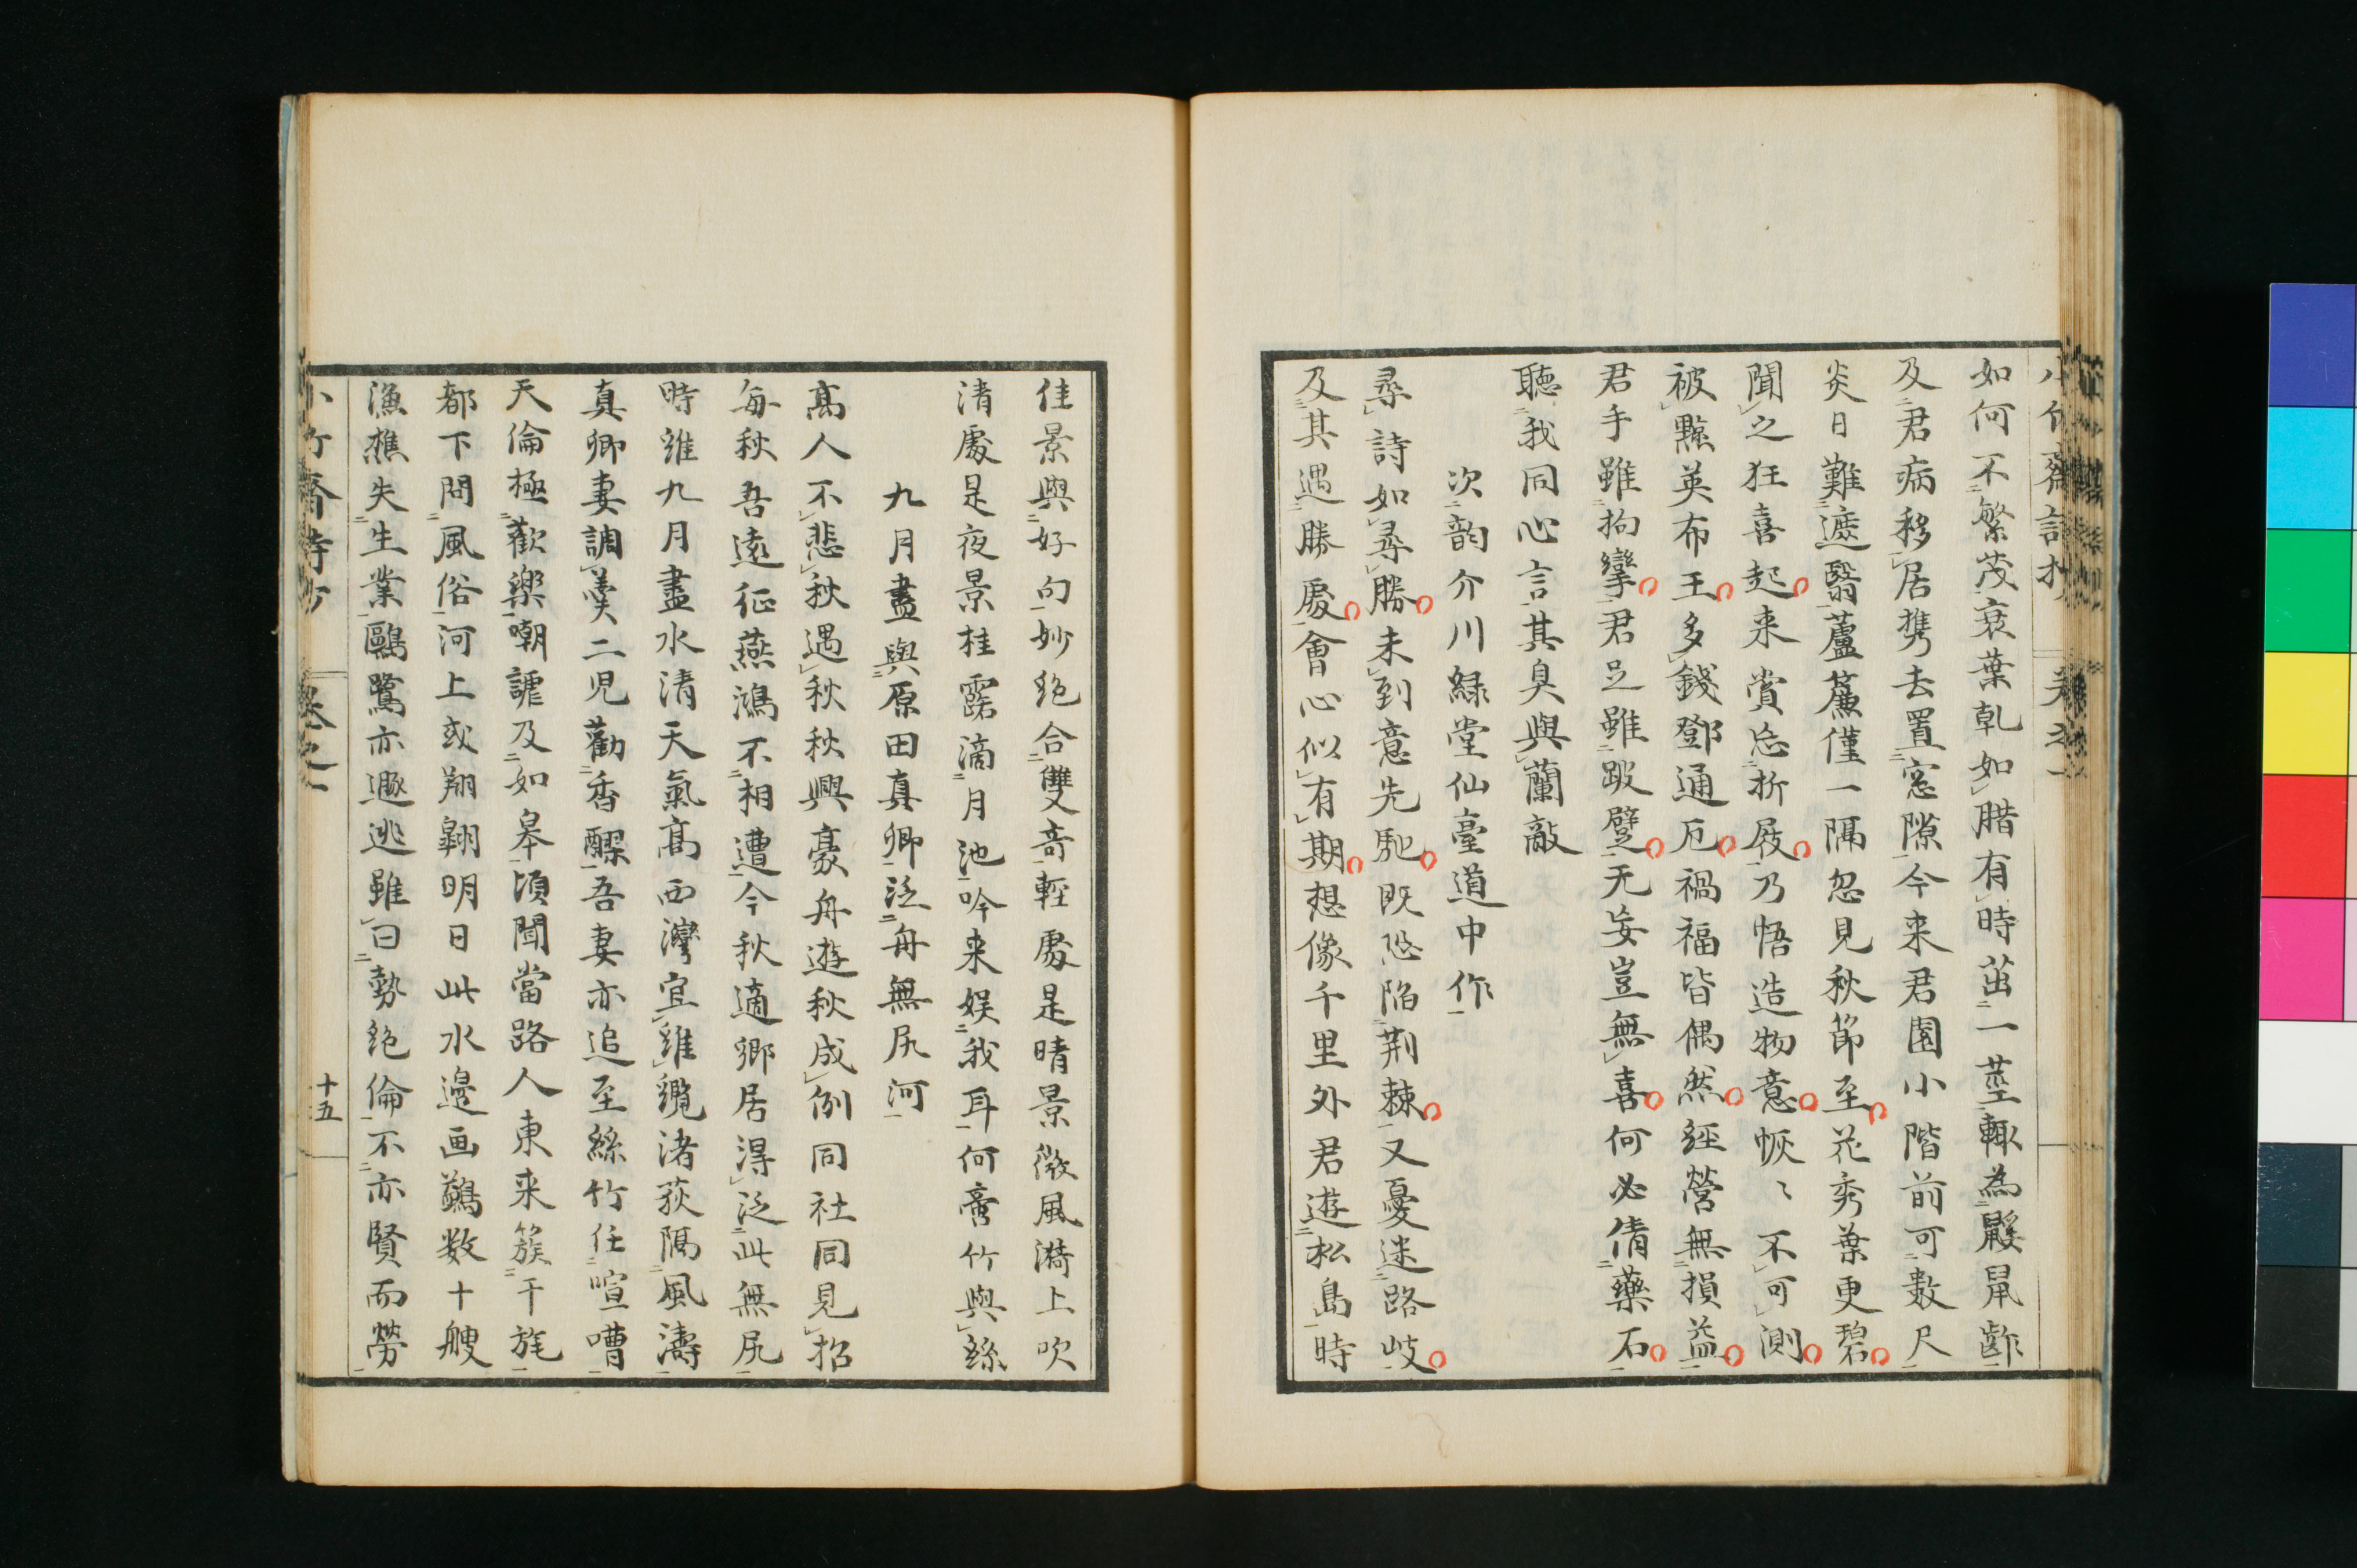 如何不繁茂衰葉乾如腊有時茁一莖輙為鼷鼠齚
及君病移居携去置窓隙今来君園小階前可数尺
炎日難遮翳蘆簾僅一隔忽見秋節至花秀葉更碧
聞之狂喜起来賞忘折屐乃悟造物意恢〻不可測
被黥英布王多錢鄧通厄禍福皆偶然経營無損益
君手雖拘攣君足雖跛躄无妄豈無喜何必倩藥石
聽我同心言其臭與蘭敵
次韵介川緑堂仙臺道中作
尋詩如尋勝未到意先馳既恐陷荆棘又憂迷路岐
及其遇勝處會心似有期想像千里外君遊松島時
佳景與好句妙絶合雙竒輕處是晴景微風漪上吹
清處是夜景桂露滴月池吟来娯我耳何啻竹與絲
九月盡與原田真卿泛舟無尻河
髙人不悲秋遇秋秋興豪舟遊秋成例同社同見招
每秋吾遠征燕鴻不相遭今秋適郷居得泛此無尻
時維九月盡水清天氣髙西灣宜維纜渚荻隔風濤
真卿妻調羹二児勸香醪吾妻亦追至絲竹任喧嘈
天倫極歡樂嘲謔及如皋頃聞當路人東来簇干旄
都下問風俗河上或翔翶明日此水邉画鷁数十艘
漁樵失生業鷗鷺亦遯逃雖曰勢絶倫不亦賢而勞
小竹齋詩抄
卷之一
十五